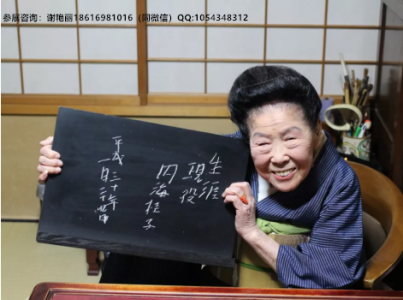 参展咨询：谢艳丽18616981016（同微信）QQ:1054348312
生涯
現役
内海桂子
平成三十年
一月二十